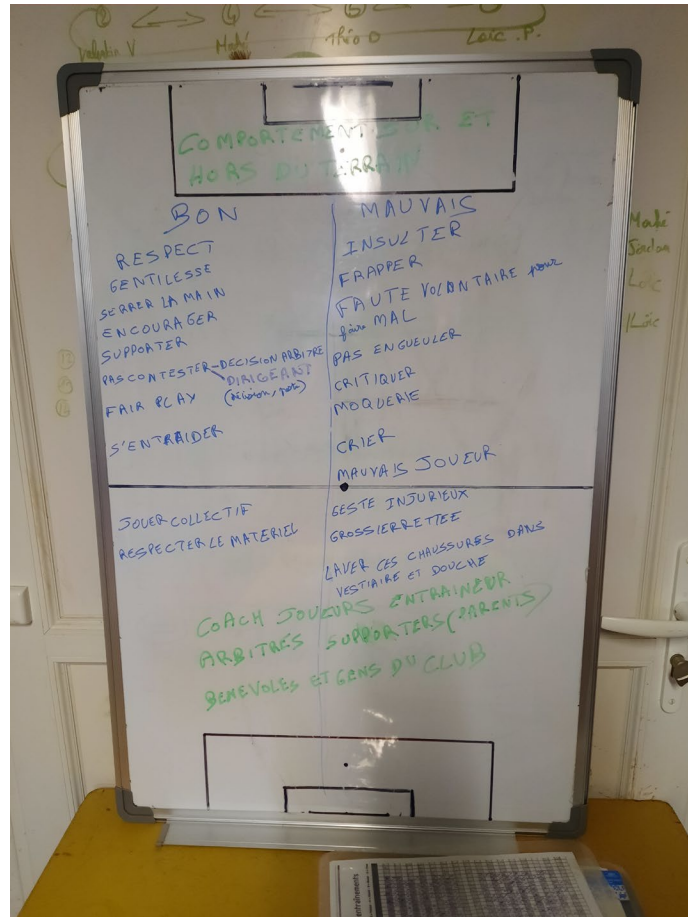 Valentin V
Théo D
Loïc . P.
COMPORTEMENT SUR ET
HORS DU TERRAIN
BON
RESPECT
GENTILESSE
SERRER LA MAIN
ENCOURAGER
SUPPORTER
PAS CONTESTER - DECISION ARBITRE
DIRIGEANT
FAIR PLAY
S'ENTRAIDER
JOUER COLLECTIF
RESPECTER LE MATERIEL
MAUVAIS
INSULTER
FRAPPER
FAUTE VOLONTAIRE pour
faire MAL
PAS ENGUEULER
CRITIQUER
MOQUERIE
CRIER
MAUVAIS JOUEUR
GESTE INJURIEUX
GROSSIERRETTEE
LAVER CES CHAUSSURES DANS
VESTIAIRE ET DOUCHE
COACH JOUEURS ENTRAINEUR
ARBITRES SUPPORTERS (PARENTS)
BENEVOLES ET GENS DU CLUB
Jordan
Loïc
entraînements